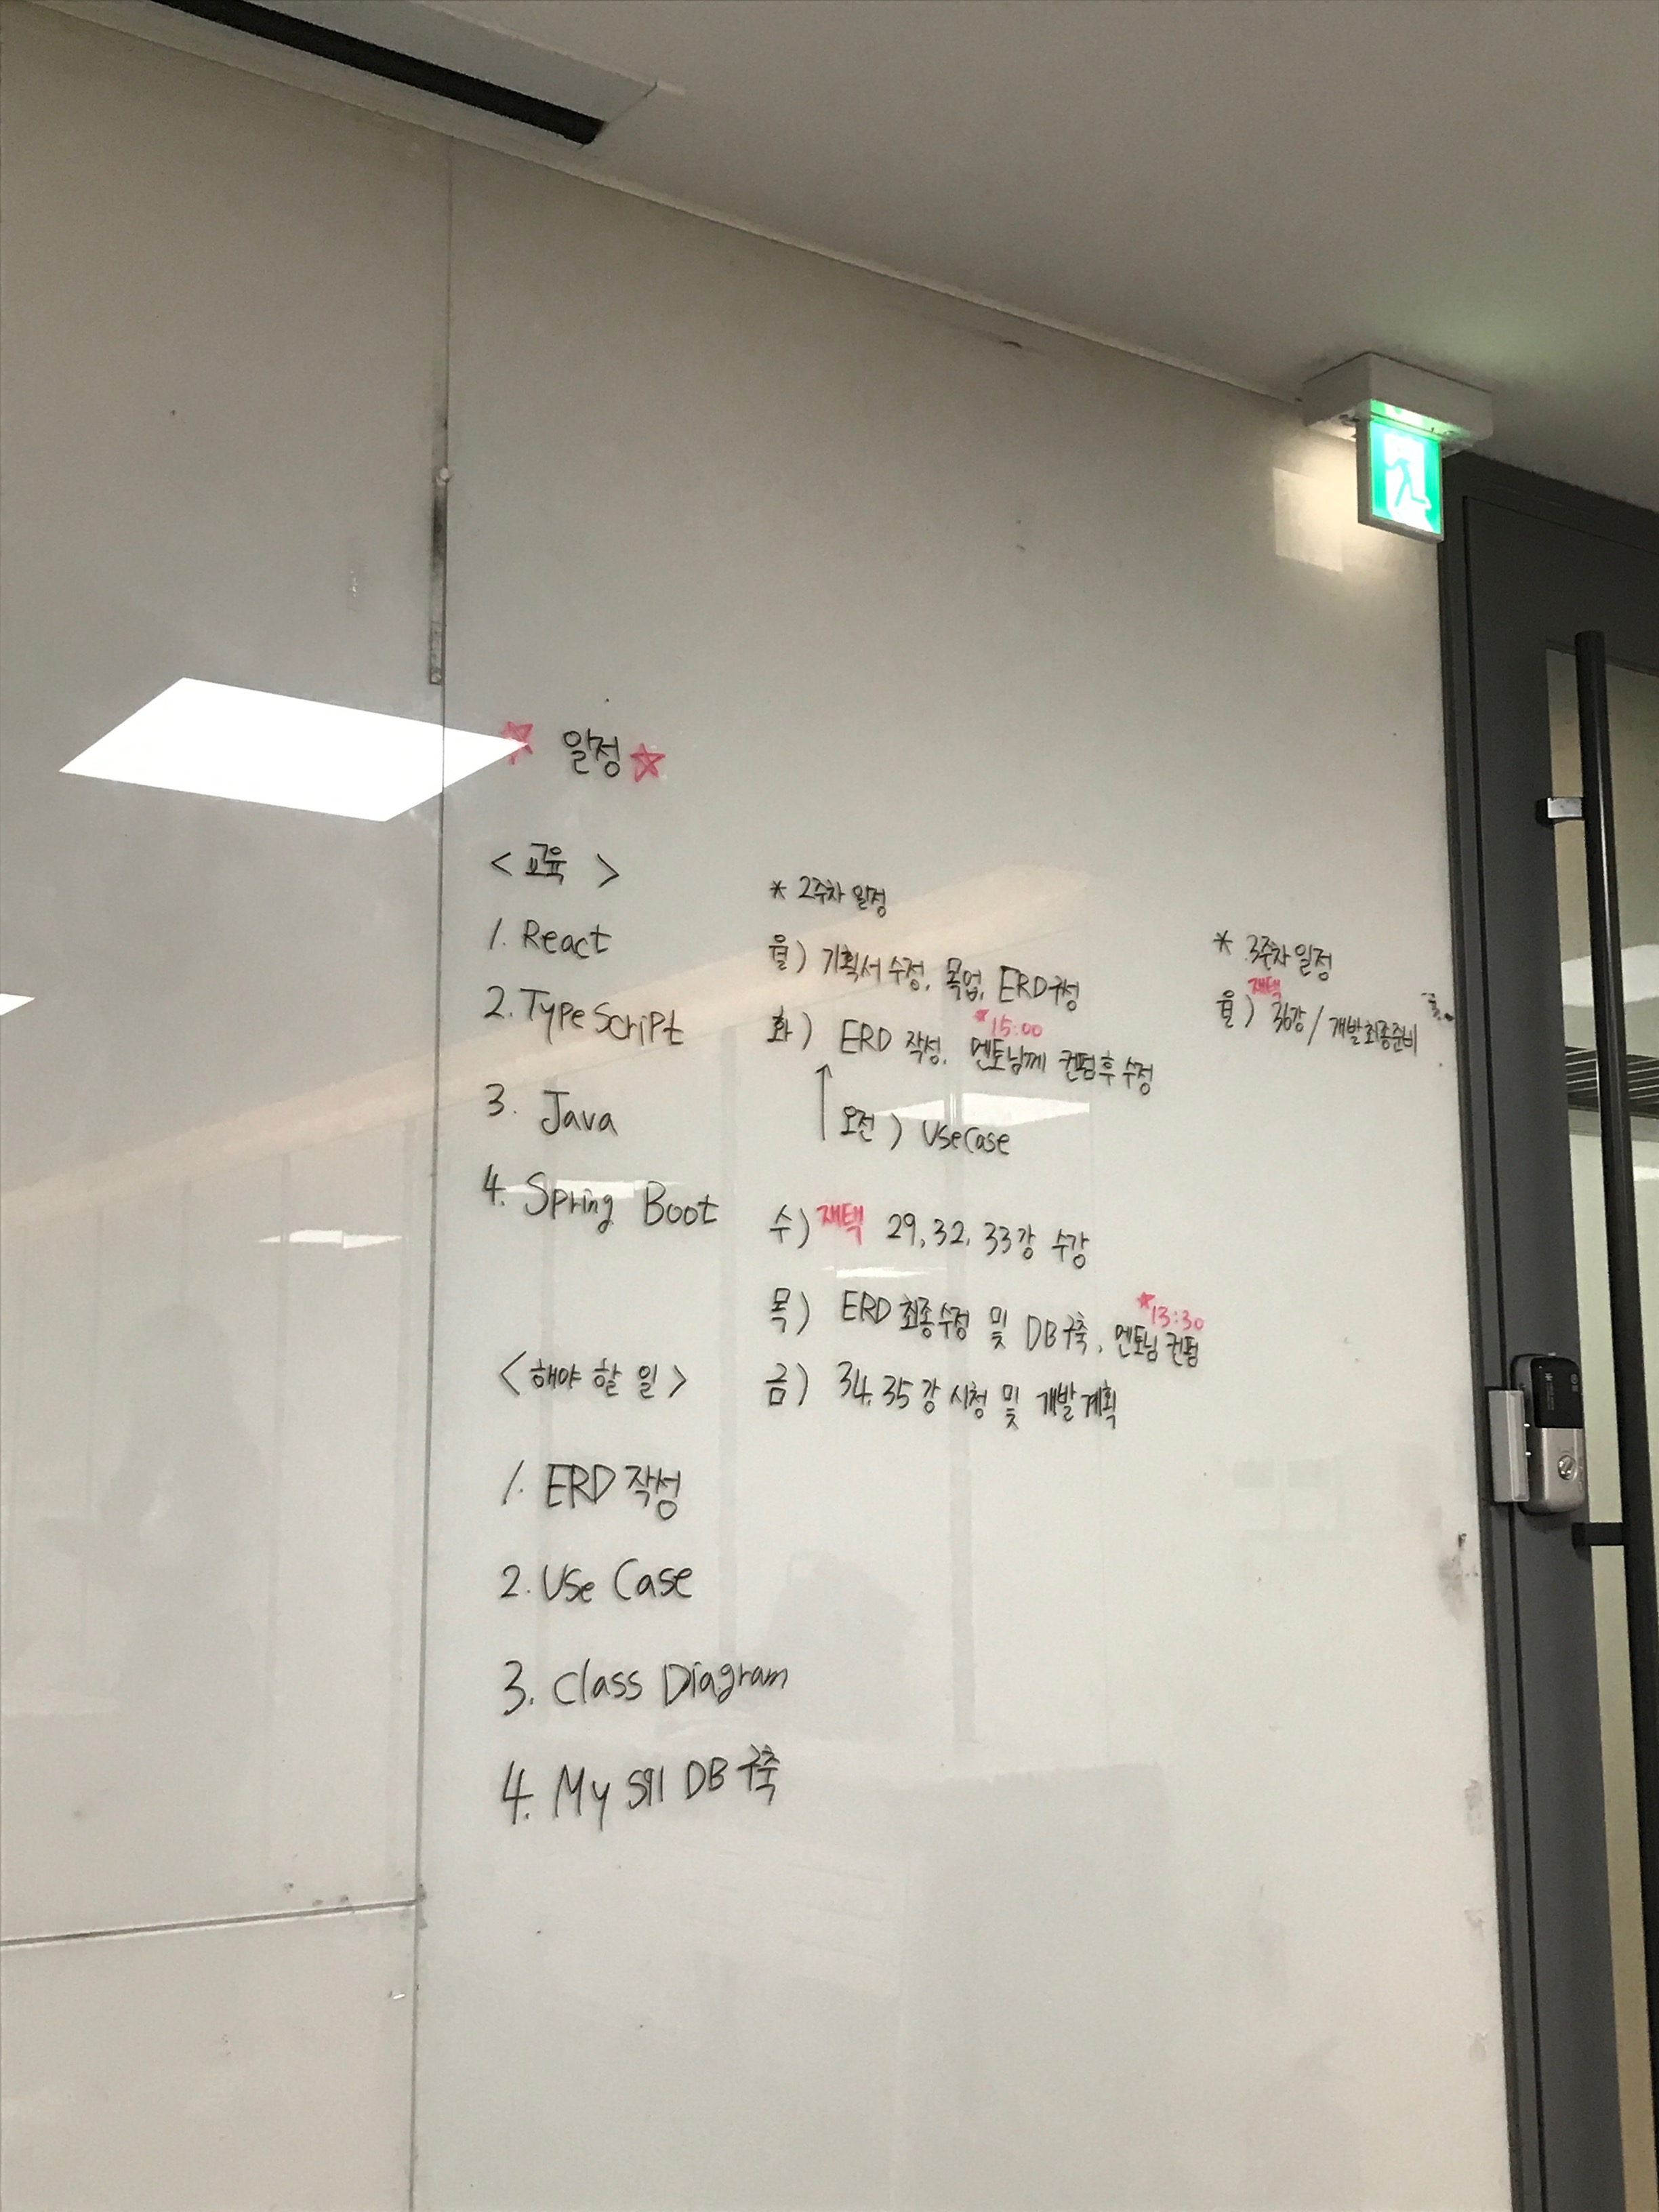 일정
< 교육 >
1. React
2. TypeScript
3. Java
4. Spring Boot
< 해야 할 일 >
1. ERD 작성
2. Use Case
3. Class Diagram
4. My SQl DB 구축
* 2주차 일정
월) 기획서 수정, 목업, ERD구성
*15:00
화) ERD 작성, 멘토님께 컨펌 후 수정
오전 ) UseCase
수) 재택 29, 32, 33강 수강
*13:30
목) ERD 최종수정 및 DB구축, 멘토님 컨펌
금) 34, 35강 시청 및 개발계획
* 3주차 일정
재택
월) 36강 / 개발최종준비